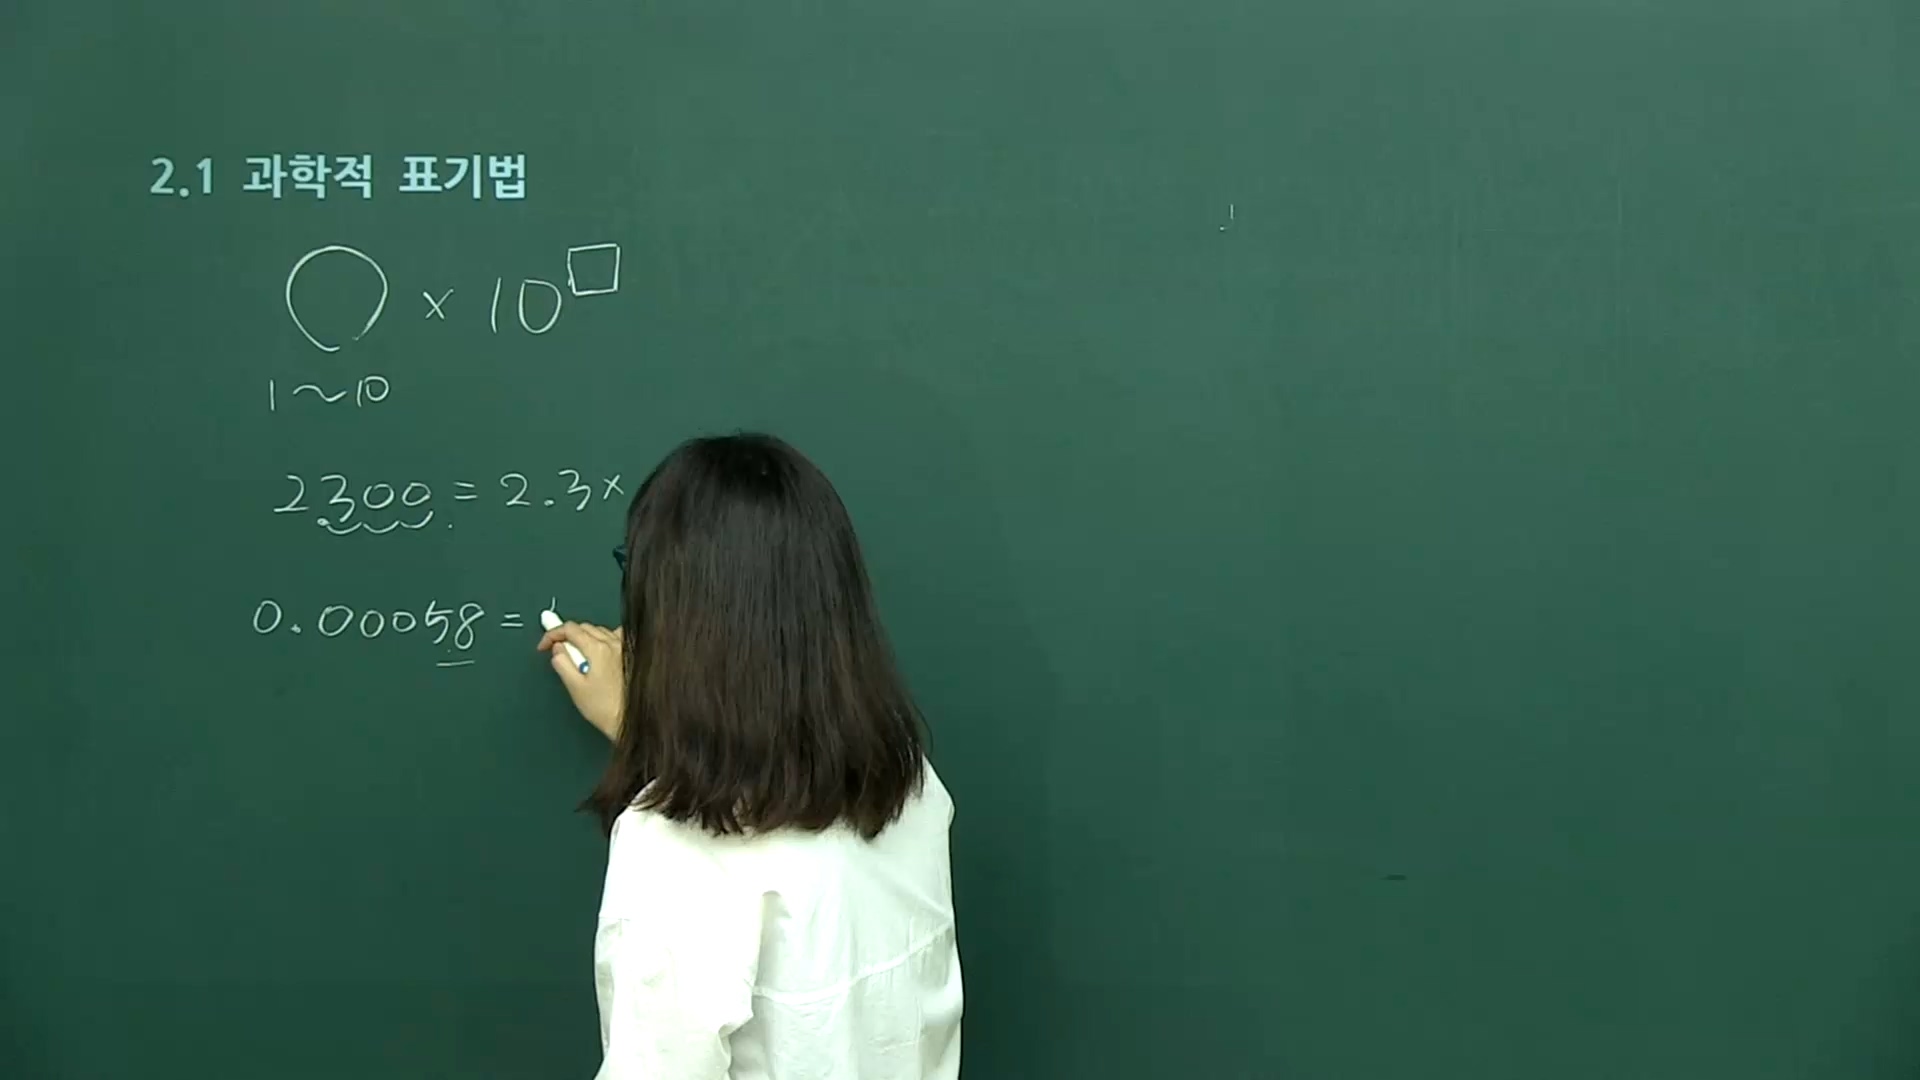 2.1 과학적 표기법
○ × 10□
1~10
2300 = 2.3×
0.00058 =